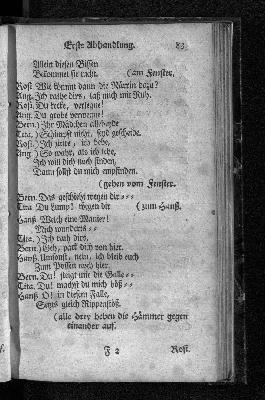 Erste Abhandlung. 83
Allein diesen Bissen
Bekommet sie nicht. (am Fenster.
Rosi. Wie kömmt dann die Närrin dazu?
Ang. Ich rathe dirs, laß mich mit Ruh.
Rosi. Du kecke, verwegne!
Ang. Du grobe verwegne!
Bern.) Ihr Mädchen allebeyde
Tita.) Schimpft nicht, seyd gescheide.
Rosi.) Ich zitte, ich bebe,
Ang.) So wahr, als ich lebe,
Ich will dich noch finden,
Dann sollst du mich empfinden.
(gehen vom Fenster.
Bern. Das geschieht wegen dir
Tita. Du Lump! wegen dir (zum Hanß.
Hanß. Welch eine Manier!
Mich wunderts
Tita.) Ich rath dirs,
Bern.) Geh, pack dich von hier.
Hanß. Umsonst, nein, ich bleib euch
Zum Possen noch hier.
Bern. Du! steigt mir die Galle
Tita. Du! machst du mich böß
Hanß. O! in diesem Falle,
Setzts gleich Rippenstöß.
(alle drey heben die Hämmer gegen
einander auf.
F 2 Rosi.